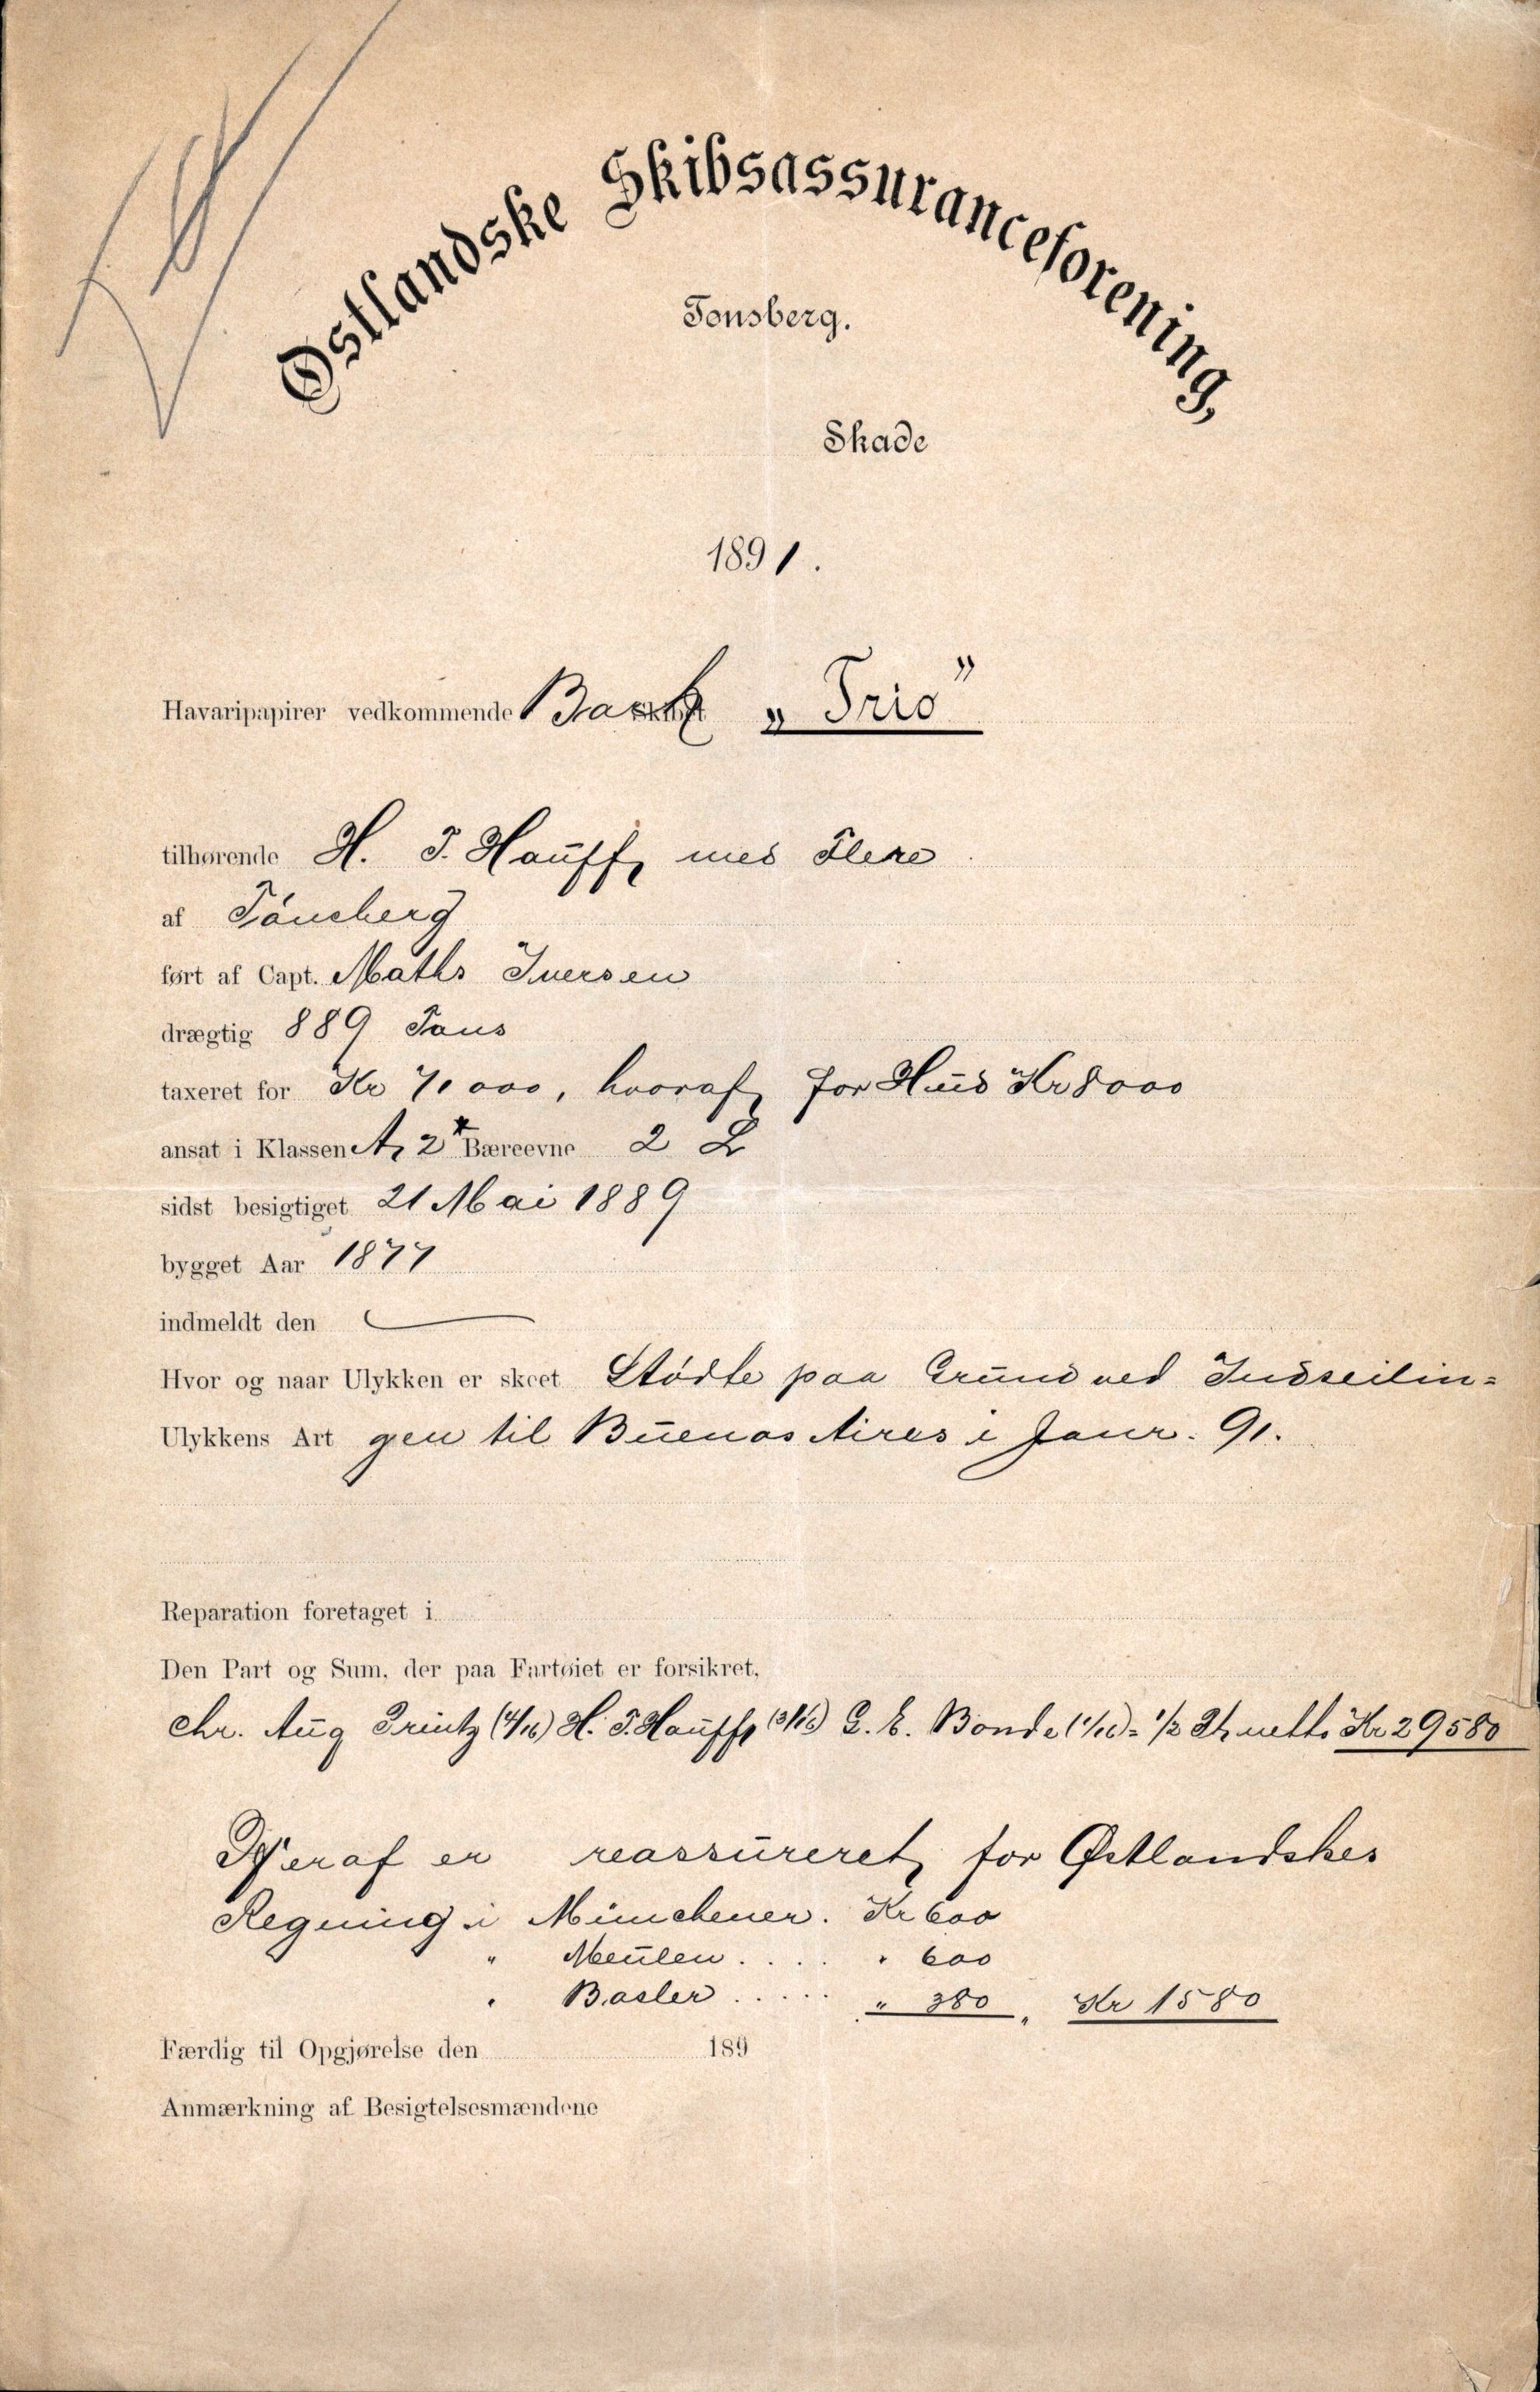 Østlandske Skibsassuranceforening,
Tønsberg.
Skade
1891.
Havaripapirer vedkommende Bark Skibet „Trio”
tilhørende H. T. Hauff, med Flere
af Tönsberg
ført af Capt. Maths Iversen
drægtig 889 Tons
taxeret for Kr 71000, hvoraf for Hud Kr 8000
ansat i Klassen A, 2* Bæreevne 2 L
sidst besigtiget 21 Mai 1889
bygget Aar 1877
indmeldt den
Hvor og naar Ulykken er skeet Stødte paa Grund ved Indseilin=
Ulykkens Art gen til Buenos Aires i Janr. 91.
Reparation foretaget i
Den Part og Sum, der paa Fartøiet er forsikret,
Chr. Aug Printz (4/16) H. T. Hauff, (3/16) G. E. Bonde (1/16) = 1/2 netto Kr 29580
Heraf er reassureret, for Østlandskes
Regning i Münchener. Kr 600
" Meulen.... " 600
" Basler..... " 380, Kr 1580
Færdig til Opgjørelse den 189
Anmærkning af Besigtelsesmændene